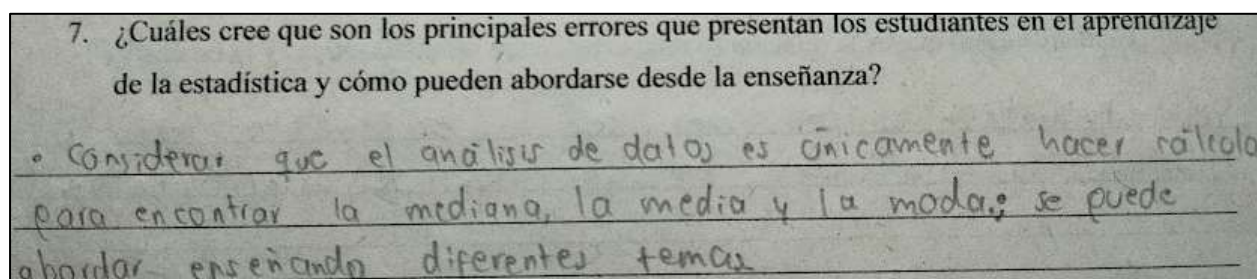 7. ¿Cuáles cree que son los principales errores que presentan los estudiantes en el aprendizaje
de la estadística y cómo pueden abordarse desde la enseñanza?
• Considerar que el análisis de datos es únicamente hacer cálculo
para encontrar la mediana, la media y la moda; se puede
abordar enseñando diferentes temas